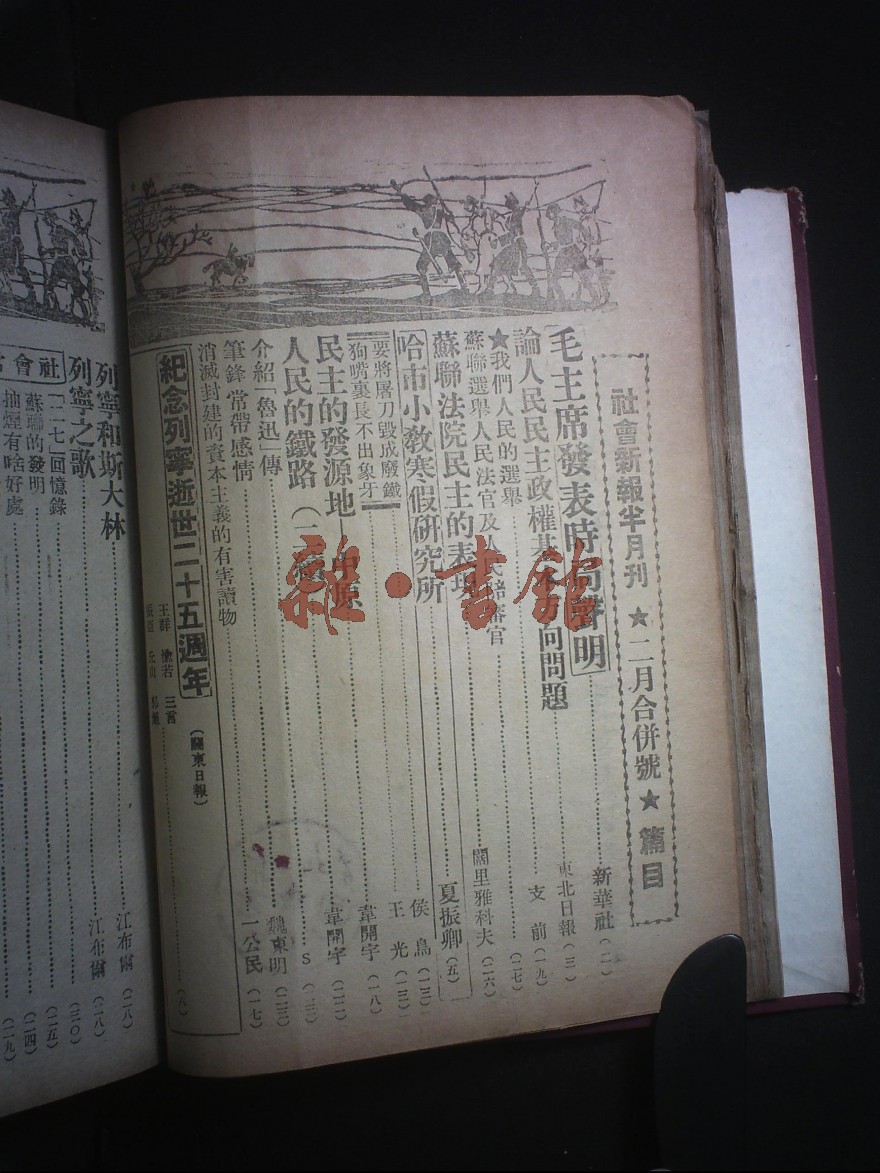 社會新報半月刊 ★ 二月合併號 ★ 篇目
毛主席發表時局聲明 新華社（一）
論人民民主政權基本方向問題 東北日報（三）
★我們人民的選舉 支前（一九）
蘇聯選舉人民法官及人民陪審官（一七）
蘇聯法院民主的表現 闊里雅科夫（二六）
哈市小教寒假研究所 夏振卿（五）
要將屠刀毀成廢鐵 侯鳥
狗嘴裏長不出象牙 王光
民主的發源地 韋開宇（一八）
人民的鐵路 韋開宇
介紹「魯迅」傳 S
筆鋒常帶感情 魏東明
消滅封建的資本主義的有害讀物 一公民（一七）
紀念列寧逝世二十五週年（關東日報）
王群 三言
（六）
列寧和斯大林 江布爾（二八）
列寧之歌 江布爾（二八）
社會
「一一七」回憶錄（三〇）
蘇聯的發明（二五）
抽煙有啥好處（二四）
（二九）
雜·書館